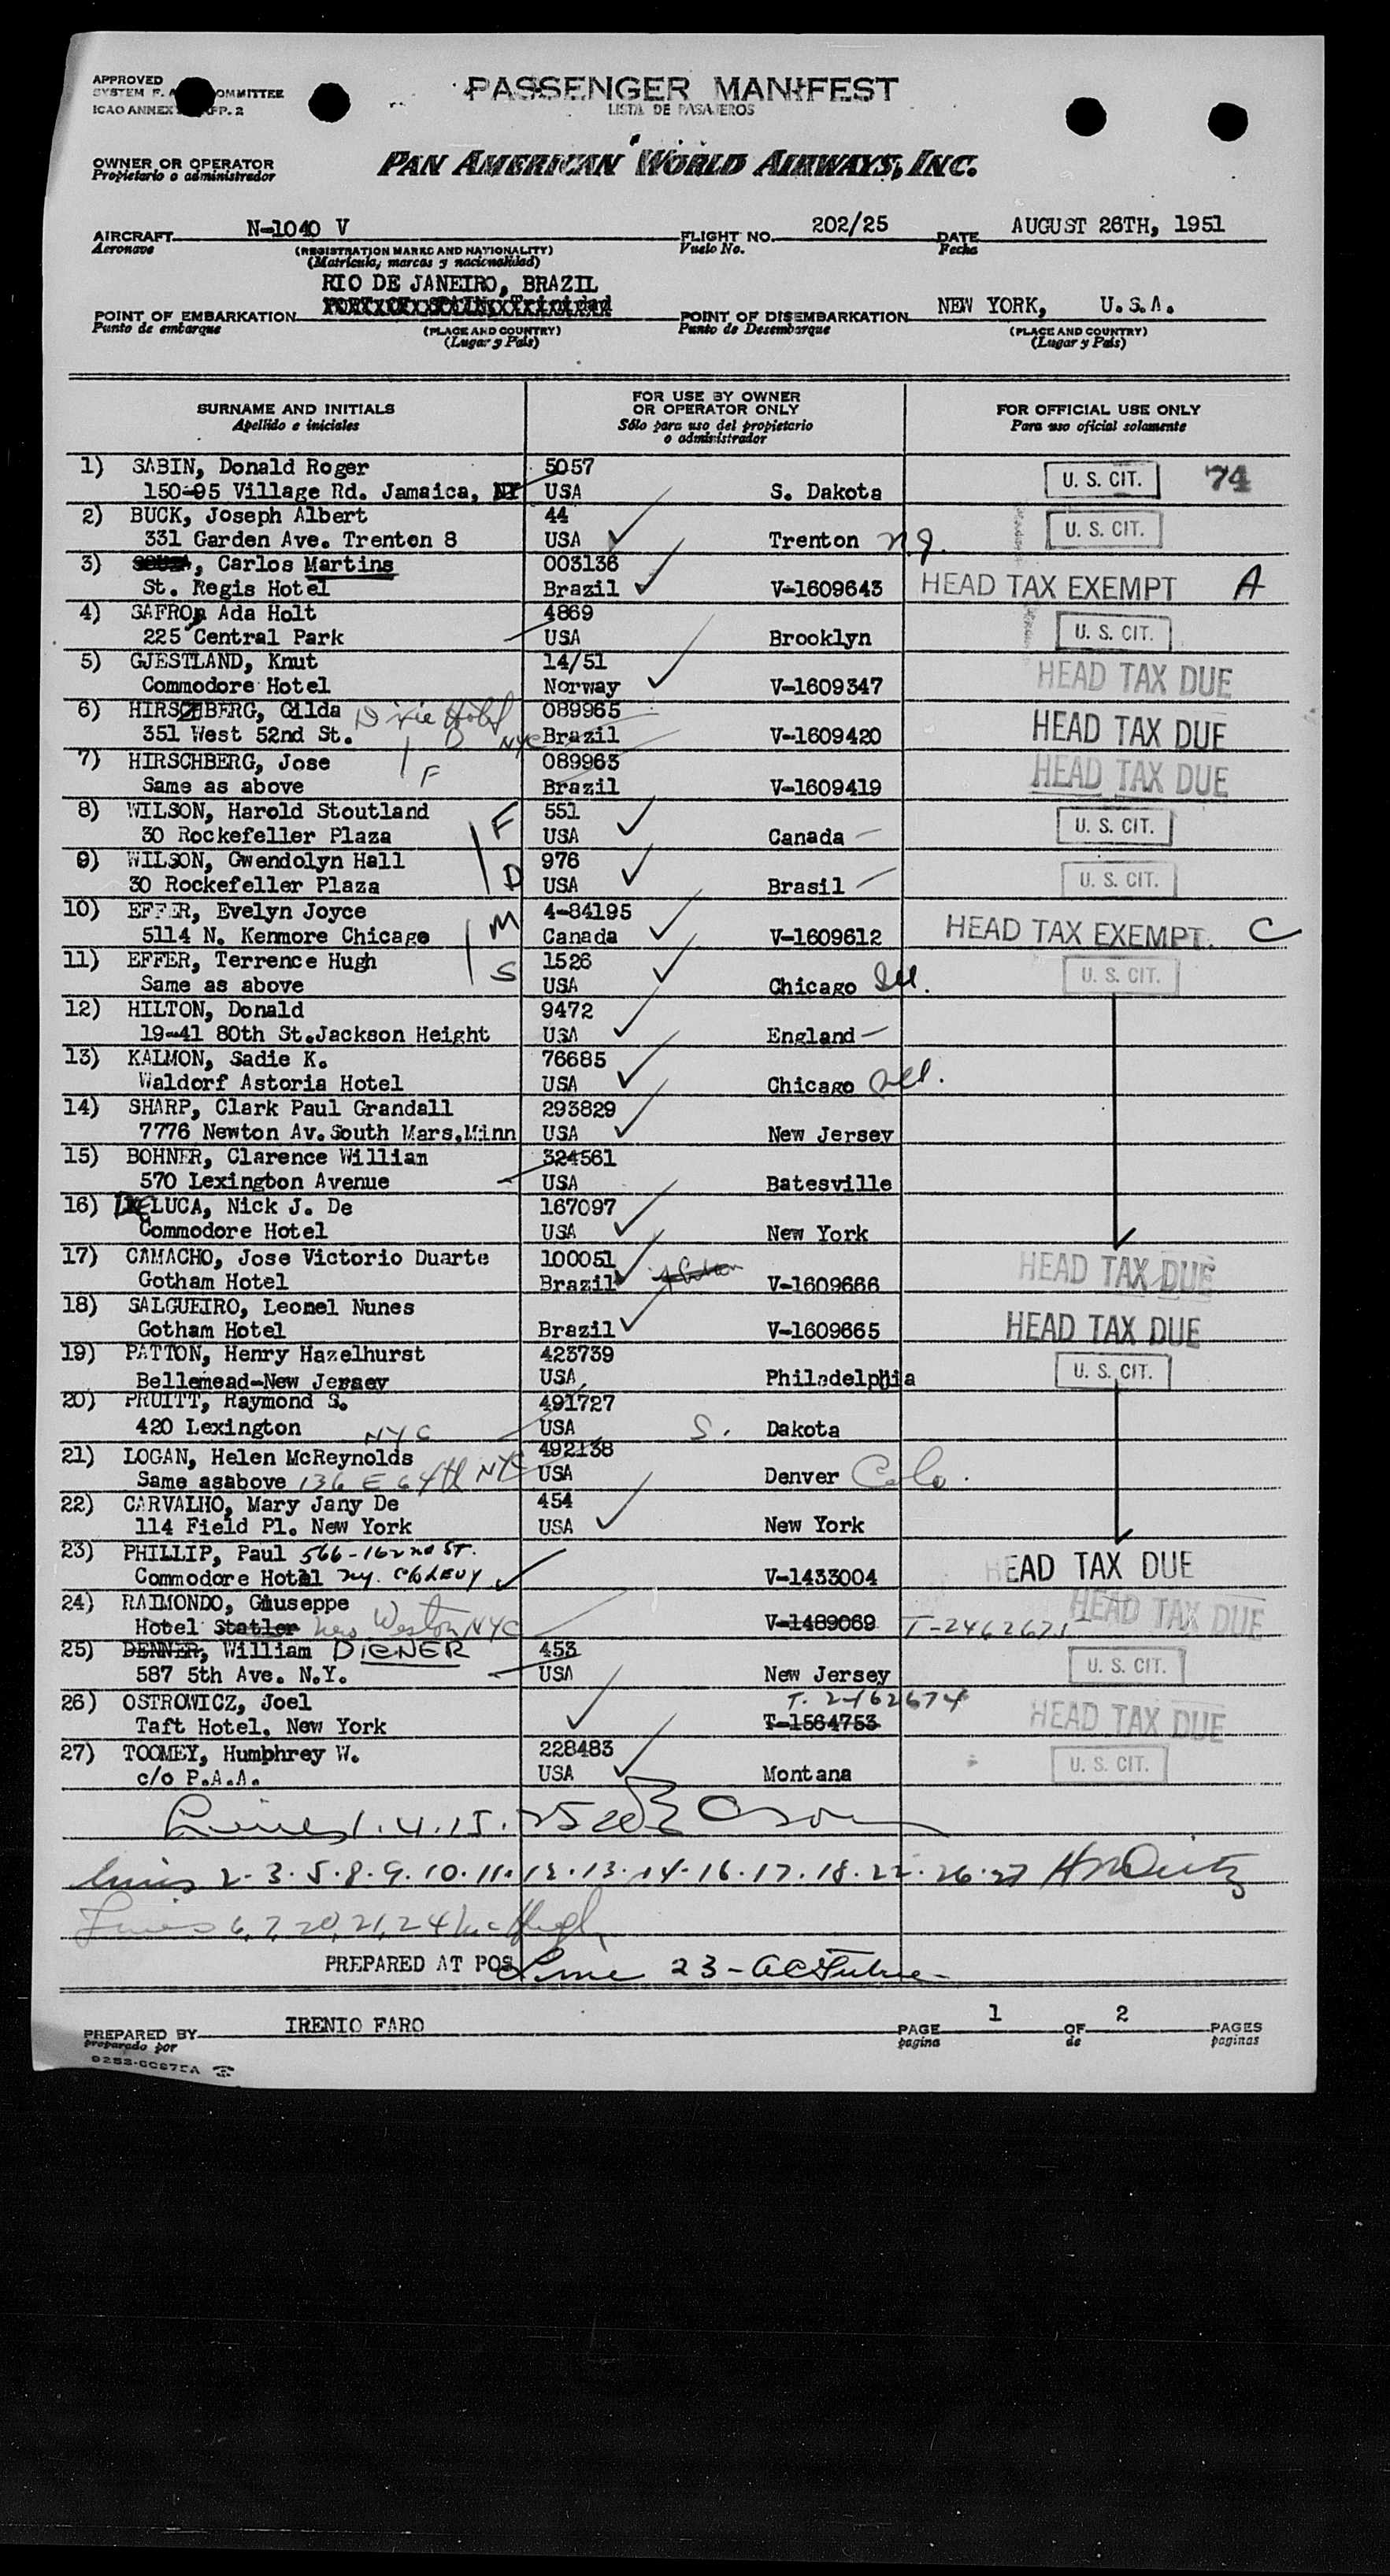 APPROVED
SYSTEM F. A. COMMITTEE
ICAO ANNEX APP. 2
PASSENGER MANIFEST
LISTA DE PASAJEROS
OWNER OR OPERATOR
Propietario o administrador
PAN AMERICAN WORLD AIRWAYS, INC.
AIRCRAFT N-1040 V FLIGHT NO. 202/25 DATE AUGUST 26TH, 1951
Aeronave (REGISTRATION MARKS AND NATIONALITY) Vuelo No. Fecha
(Matricula, marcas y nacionalidad)
RIO DE JANEIRO, BRAZIL
POINT OF EMBARKATION POINT OF DISEMBARKATION NEW YORK, U.S.A.
Punto de embarque (PLACE AND COUNTRY) Punto de Desembarque (PLACE AND COUNTRY)
(Lugar y Pais) (Lugar y Pais)
SURNAME AND INITIALS FOR USE BY OWNER OR OPERATOR ONLY FOR OFFICIAL USE ONLY
Apellido e iniciales Sólo para uso del propietario o administrador Para uso oficial solamente
1) SABIN, Donald Roger 5057 U. S. CIT. 74
150-95 Village Rd. Jamaica, NY USA S. Dakota
2) BUCK, Joseph Albert 44 U. S. CIT.
331 Garden Ave. Trenton 8 USA Trenton N.J.
3) , Carlos Martins 003136
St. Regis Hotel Brazil V-1609643 HEAD TAX EXEMPT A
4) SAFRO, Ada Holt 4869 U. S. CIT.
225 Central Park USA Brooklyn
5) GJESTLAND, Knut 14/51
Commodore Hotel Norway V-1609347 HEAD TAX DUE
6) HIRSCHBERG, Gilda Dixie Hotel 089965
351 West 52nd St. D NYC Brazil V-1609420 HEAD TAX DUE
7) HIRSCHBERG, Jose 089963
Same as above F Brazil V-1609419 HEAD TAX DUE
8) WILSON, Harold Stoutland F 551
30 Rockefeller Plaza USA Canada U. S. CIT.
9) WILSON, Gwendolyn Hall 976
30 Rockefeller Plaza D USA Brasil U. S. CIT.
10) EFFER, Evelyn Joyce M 4-84195
5114 N. Kenmore Chicago Canada V-1609612 HEAD TAX EXEMPT. C
11) EFFER, Terrence Hugh 1526
Same as above S USA Chicago Ill. U. S. CIT.
12) HILTON, Donald 9472
19-41 80th St.Jackson Height USA England
13) KALMON, Sadie K. 76685
Waldorf Astoria Hotel USA Chicago Ill.
14) SHARP, Clark Paul Grandall 293829
7776 Newton Av.South Mars.Minn USA New Jersey
15) BOHNER, Clarence Willian 324561
570 Lexington Avenue USA Batesville
16) DE LUCA, Nick J. De 167097
Commodore Hotel USA New York
17) CAMACHO, Jose Victorio Duarte 100051
Gotham Hotel Brazil V-1609666 HEAD TAX DUE
18) SALGUEIRO, Leonel Nunes
Gotham Hotel Brazil V-1609665 HEAD TAX DUE
19) PATTON, Henry Hazelhurst 423739
Bellemead-New Jersey USA Philadelphia U. S. CIT.
20) PRUITT, Raymond S. 491727
420 Lexington NYC USA S. Dakota
21) LOGAN, Helen McReynolds 492138
Same asabove 136 E 64th NYC USA Denver Colo.
22) CARVALHO, Mary Jany De 454
114 Field Pl. New York USA New York
23) PHILLIP, Paul 566-162nd ST.
Commodore Hotel NY. C/O LEVY V-1433004 HEAD TAX DUE
24) RAIMONDO, Giuseppe
Hotel Statler New Weston NYC V-1489069 T-2462673 HEAD TAX DUE
25) DENNER, William DIENER 453
587 5th Ave. N.Y. USA New Jersey U. S. CIT.
26) OSTROWICZ, Joel T. 2462674
Taft Hotel, New York T-1564753 HEAD TAX DUE
27) TOOMEY, Humphrey W. 228483
c/o P.A.A. USA Montana U. S. CIT.
Lines 1. 4. 15. 25
Lines 2-3-5-8-9-10-11-12-13-14-16-17-18-22-26-27
Lines 6, 7, 20, 21, 24 McHugh
PREPARED AT POS Line 23 -
PREPARED BY IRENIO FARO PAGE 1 OF 2 PAGES
preparado por pagina de paginas